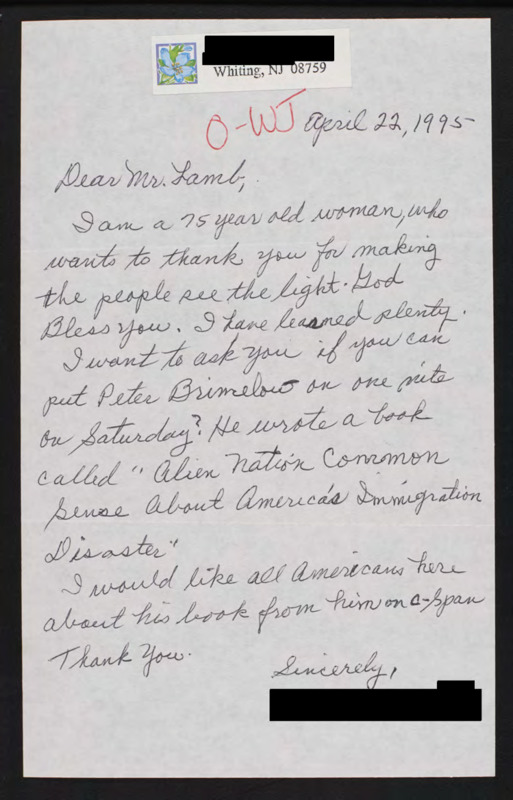 Whiting, NJ 08759
O-WJ April 22, 1995
Dear Mr. Lamb,
I am a 75 year old woman, who
wants to thank you for making
the people see the light. God
Bless you. I have learned plenty.
I want to ask you if you can
put Peter Brimelow on one nite
on Saturday? He wrote a book
called " Alien Nation Common
Sense About America's Immigration
Disaster"
I would like all Americans here
about his book from him on c-span
Thank You.
Sincerely,